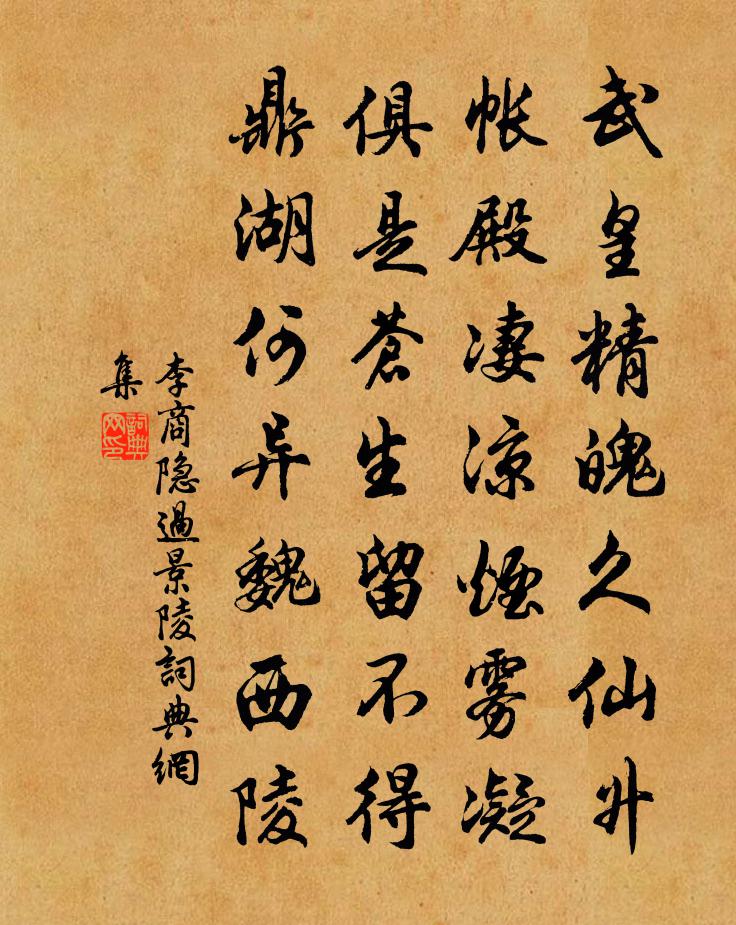 武皇精魄久仙升
帐殿凄凉烟雾凝
俱是苍生留不得
鼎湖何异魏西陵
李商隐過景陵詞典網
集
詞典
网印